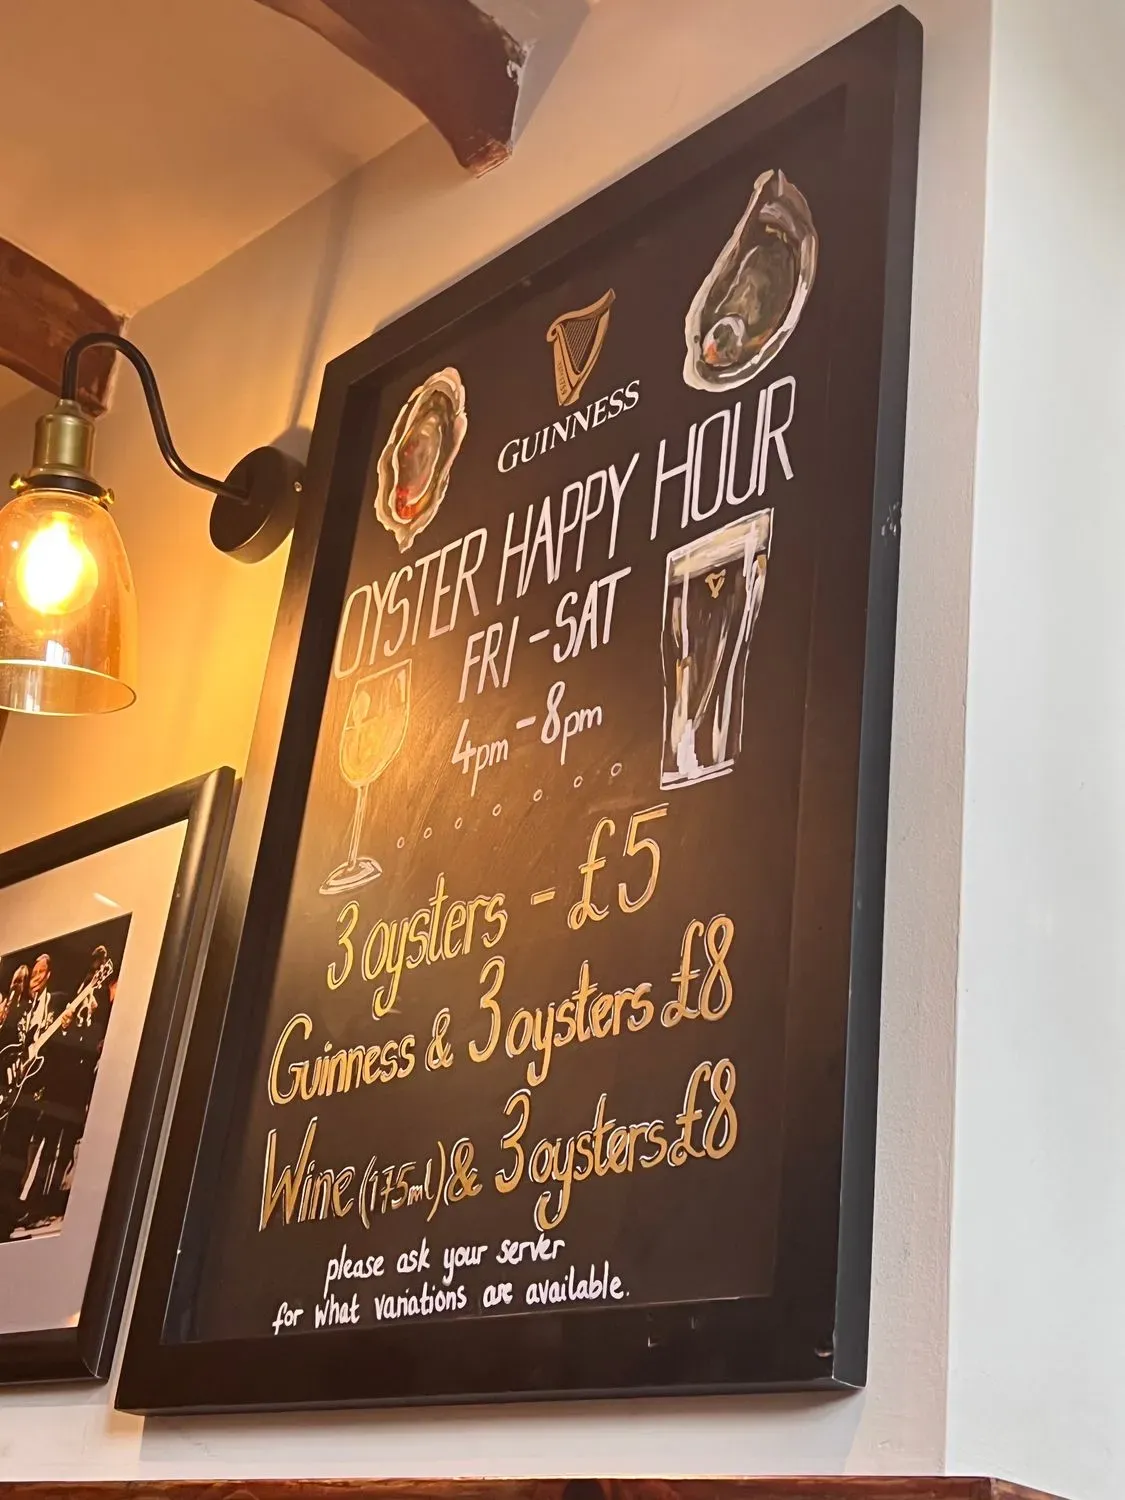 GUINNESS
OYSTER HAPPY HOUR
FRI-SAT
4pm-8pm
3 oysters - £5
Guinness & 3 oysters £8
Wine (175ml) & 3 oysters £8
please ask your server
for what variations are available.